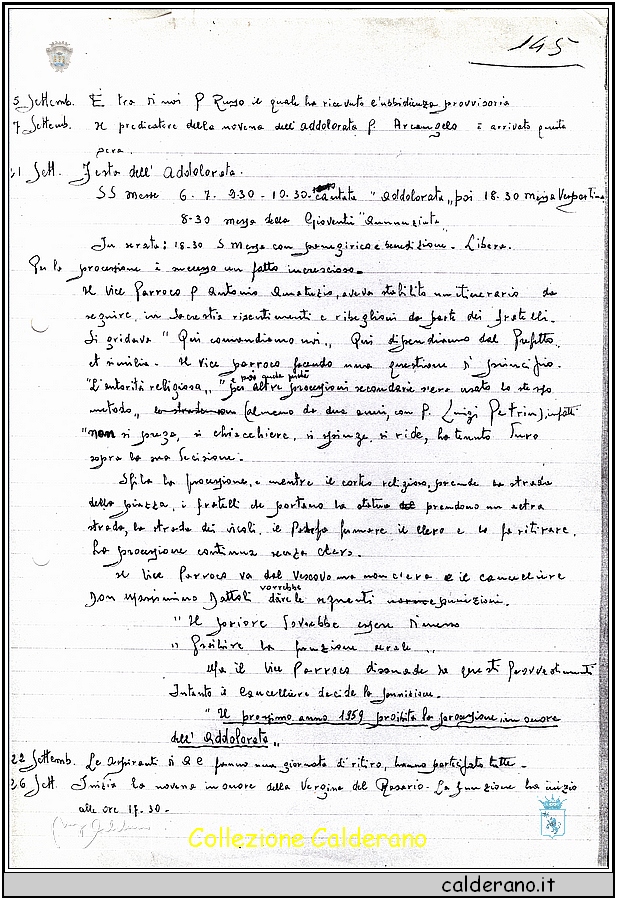 145
5 Settemb. È tra di noi P Russo il quale ha ricevuto l'ubbidienza provvisoria
7 Settemb. Il predicatore della novena dell'addolorata P. Arcangelo è arrivato questa
sera.
21 Sett. Festa dell'Addolorata.
SS messe 6. 7. 9.30 - 10.30 - cantata "Addolorata,, poi 18.30 messa Vespertina
8.30 messa della Gioventù "Annunziata"
In serata: 18.30 S Messa con panegirico e benedizione. Libera.
Per la processione è successo un fatto increscioso -
Il Vice Parroco P Antonio Amatuzio, aveva stabilito un itinerario da
seguire, in Sacrestia risentimenti e ribellioni da parte dei fratelli.
Si gridava "Qui comandiamo noi,, Qui dipendiamo dal Prefetto
et similia. Il Vice parroco facendo una questione di principio.
"L'autorità religiosa,, per altre processioni secondarie s'era usato lo stesso
metodo,, (almeno da due anni, con P. Luigi Petrin), infatti
"non si prega, si chiacchiera, si spinge, si ride, ha tenuto duro
sopra la sua decisione.
Sfila la processione, e mentre il corteo religioso, prende la strada
della piazza, i fratelli che portano la statua prendono un'altra
strada, la strada dei vicoli. il fa fermare il clero e lo fa ritirare.
La processione continua senza clero.
Il Vice Parroco va dal Vescovo ma non c'era e il cancelliere
Don Massimino Dattoli vorrebbe dare le seguenti punizioni.
"Il priore dovrebbe essere dimesso
"Proibire la funzione serale,,
Ma il Vice Parroco dissuade da questi provvedimenti
Intanto il Cancelliere decide la punizione.
"Il prossimo anno 1959 proibita la processione in onore
dell'Addolorata,,
22 Settemb. Le Aspiranti di A C fanno una giornata di ritiro, hanno partecipato tutte -
26 Sett. Inizia la novena in onore della Vergine del Rosario. La funzione ha inizio
alle ore 17.30 -
Collezione Calderano
calderano.it